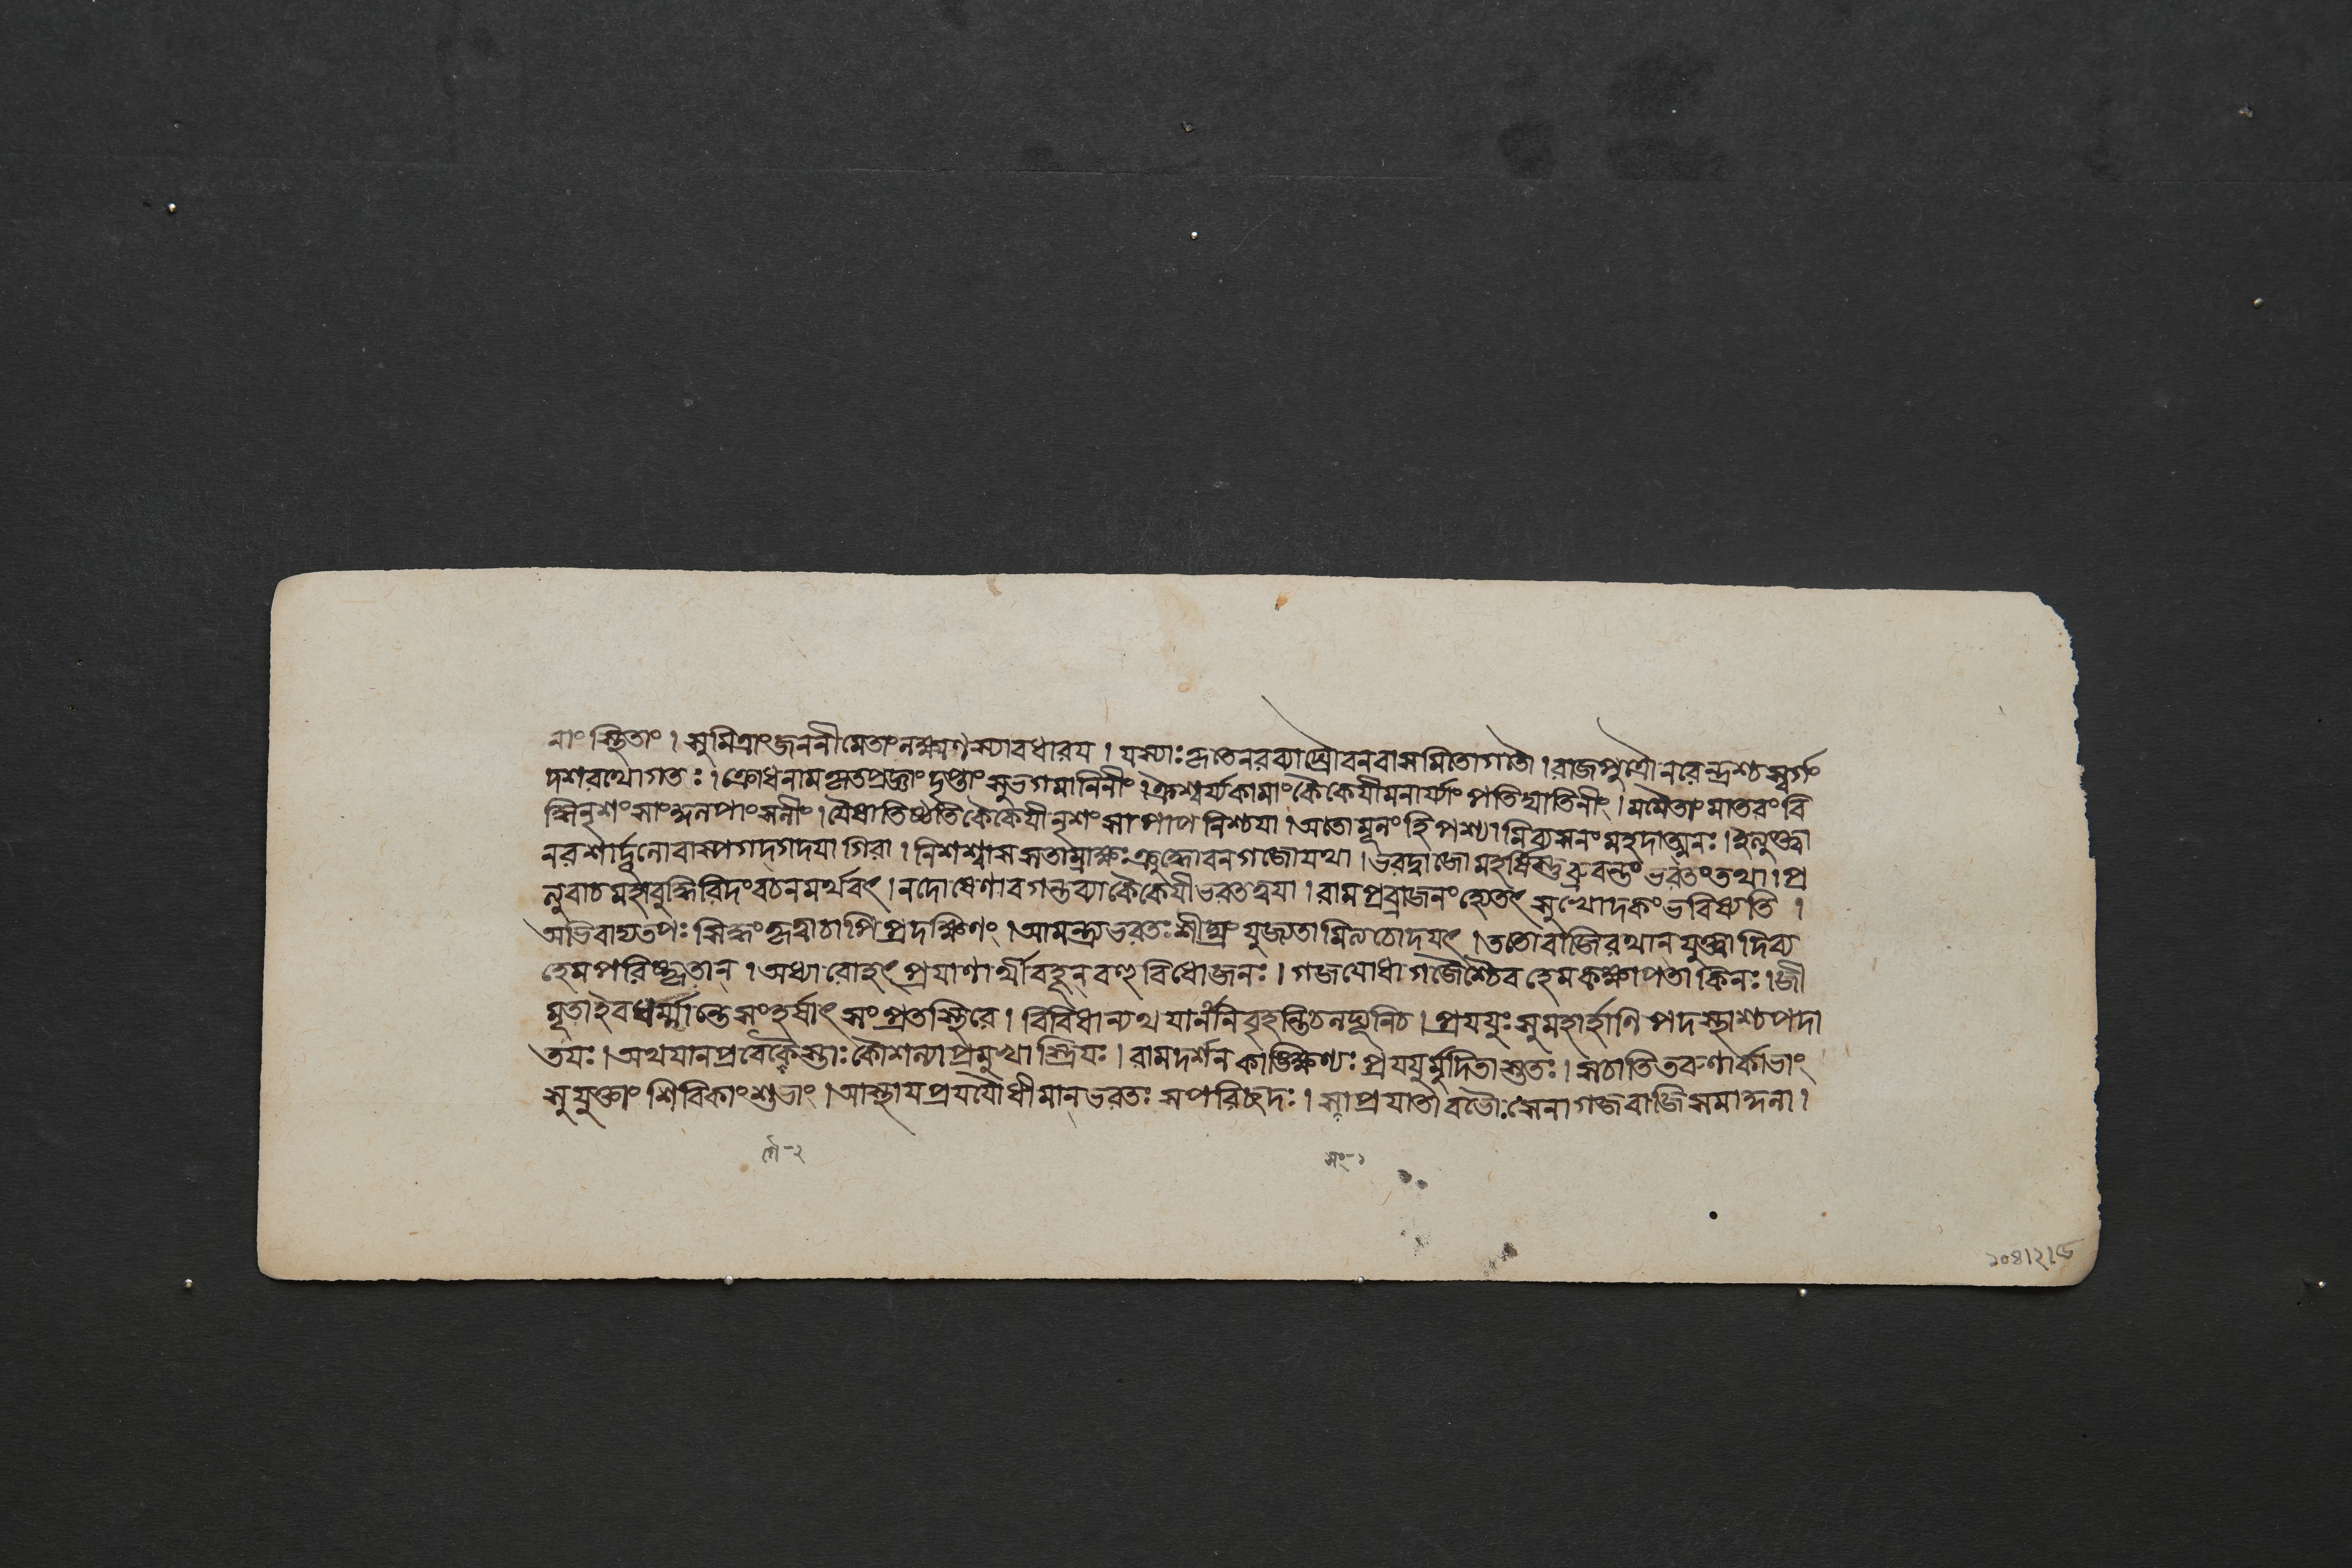 নাং স্থিতাং । সুমিত্রাংজননীমেতাংলক্ষ্মণস্যাবধারয । যস্যাঃকৃতেনরব্যাঘ্রৌবনবাসমিতোগতৌ । রাজপুত্রৌনরেন্দ্রশ্চস্বর্গং
দশরথোগতঃ । ক্রোধনামকৃতপ্রজ্ঞাং দৃপ্তাং সুভগমানিনীং । ঐশ্বর্য্যকামাংকৈকেযীমনার্য্যাং পতিঘাতিনীং । মমৈতাং মাতরং বি
দ্ধিনৃশংসাংকুলপাংসনীং । যৈষাতিষ্ঠতিকৈকেযীনৃশংসাপাপনিশ্চযা । অতোমূলংহিপশ্যামিব্যসনংমহদাত্মনঃ । ইত্যুক্ত্বা
নরশার্দূলোবাস্পগদ্গদযা গিরা । নিশশ্বাসসতাম্রাক্ষঃক্রুদ্ধোবনগজোযথা । ভরদ্বাজোমহর্ষিস্তুব্রুবন্তংভরতংতথা । প্র
ত্যুবাচমহাবুদ্ধিরিদংবচনমর্থবৎ । নদোষেণাবগন্তব্যাকৈকেযীভরতত্বযা । রামপ্রব্রাজনংহ্যেতৎ সুখোদর্কংভবিষ্যতি ।
অভিবাদ্যতপঃ সিদ্ধংকৃত্বাচাপিপ্রদক্ষিণং । আমন্ত্র্যভরতঃশীঘ্রং যুজ্যতামিত্যচোদযৎ । ততোবাজিরথান্ যুক্ত্বাদিব্য
হেমপরিষ্কৃতান্ । অধ্যারোহৎ প্রযাণার্থীবহূন্ বহুবিধোজনঃ । গজযোধাগজৈশ্চৈব হেমকক্ষাপতাকিনঃ । জী
মূতাইবঘর্ম্মান্তেসংহর্ষাৎ সংপ্রতস্থিরে । বিবিধান্যথ যানানিবৃহন্তিচলঘূনিচ । প্রযযুঃসুমহার্হাণি পদস্থাশ্চপদা
তযঃ । অথযানপ্রবেকৈস্তাঃকৌশল্যাপ্রমুখাস্ত্রিযঃ । রামদর্শনকাঙ্ক্ষিণ্যঃ প্রযযুর্মুদিতাস্ততঃ । সচাতিতরুণার্কাভাং
সুযুক্তাং শিবিকাংশুভাং । আস্থাযপ্রযযৌধীমান্ভরতঃ সপরিচ্ছদঃ । সাপ্রযাতাবভৌসেনাগজবাজিসমাকুলা ।